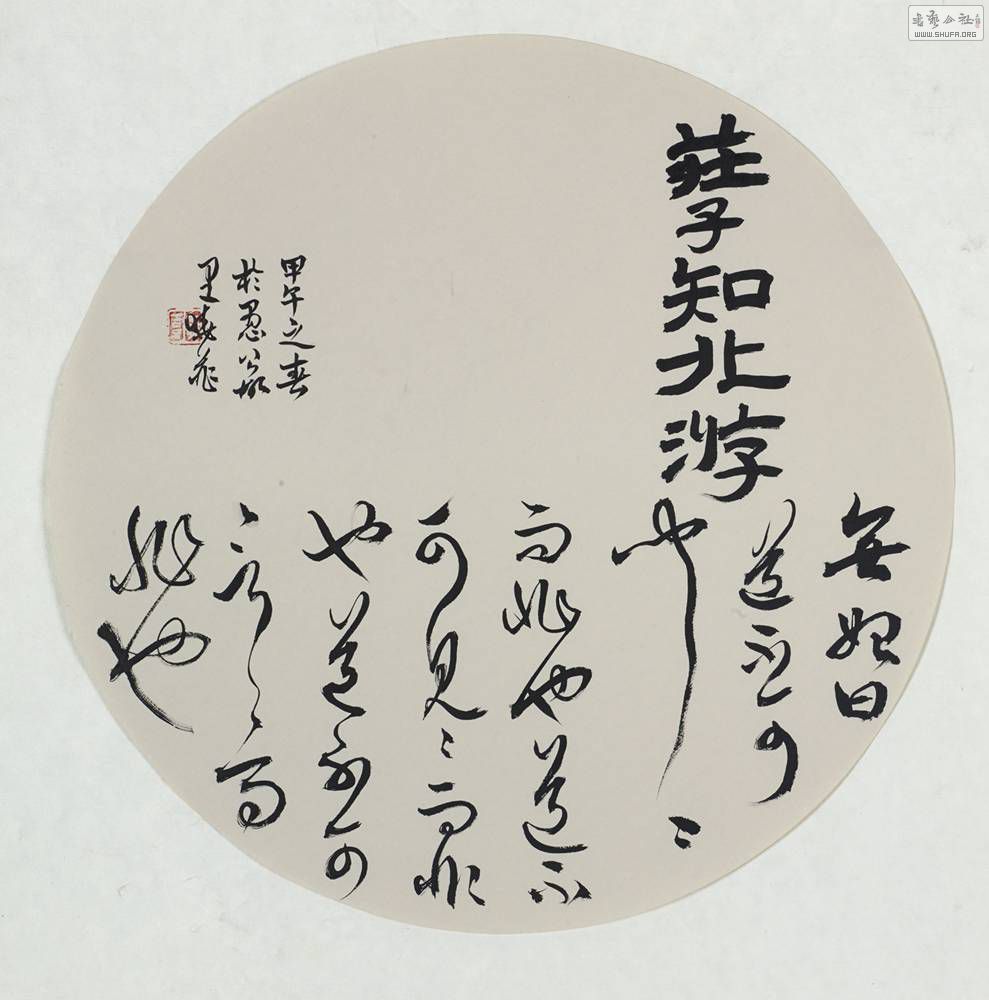 莊子知北游
無始曰
道不可
聞〻
而非也道不
可見〻而非
也道不可
言〻而
非也
甲午之春
於愚公故
里
書藝公社
WWW.SHUFA.ORG